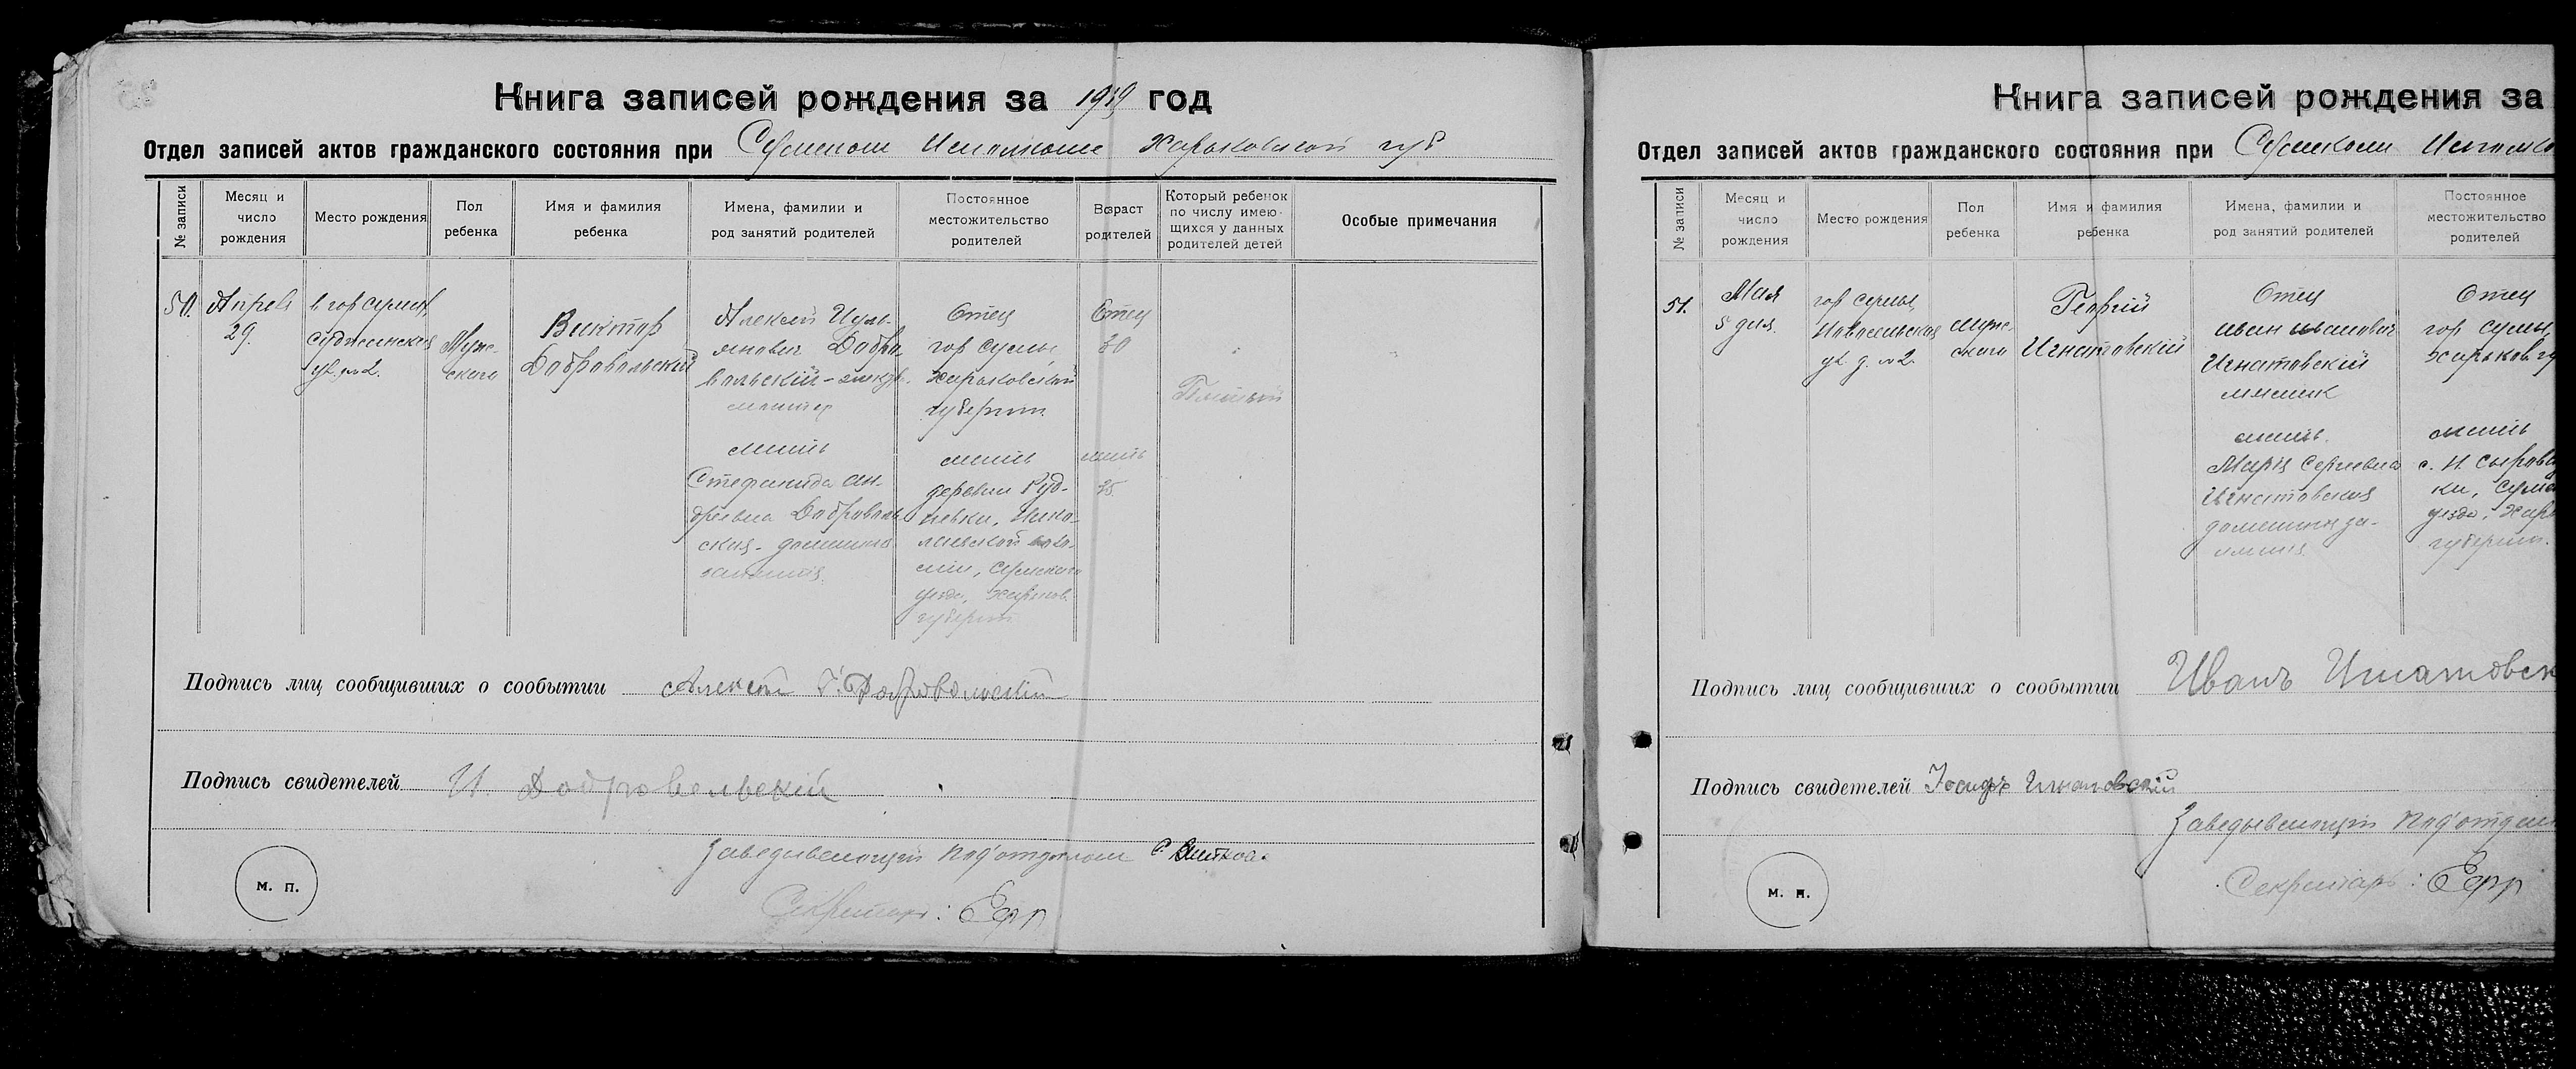 Книга записей рождения за 1919 год
Отдел записей актов гражданского состояния при Сумском Исполкоме Харьковской губ
№ записи
Месяц и число рождения
Место рождения
Пол ребенка
Имя и фамилия ребенка
Имена, фамилии и род занятий родителей
Постоянное местожительство родителей
Возраст родителей
Который ребенок по числу имеющихся у данных родителей детей
Особые примечания
50.
Апреля
29.
в гор Сумы
Суджанская
ул. д. № 2.
Муж-
ского
Виктор
Добровольский
Алексей
Добро-
вольскій
мать
Стефанида Ан-
дреевна Доброволь
ская - домашние
занятия.
Отец
гор Сумы
Харьковской
губернии
мать
деревни Руд-
невки,
Сумского
уезда, Харьков.
губерни
Отец
30
мать
25
Подпись лиц сообщивших о сообытии Алексей Добровольскій
Подпись свидетелей И. Добровольскій
Заведывающий Под'отделом
Секретарь:
м. п.
Книга записей рождения за
Отдел записей актов гражданского состояния при Сумском Исполко
№ записи
Месяц и число рождения
Место рождения
Пол ребенка
Имя и фамилия ребенка
Имена, фамилии и род занятий родителей
Постоянное местожительство родителей
51.
Мая
5 дня.
гор Сумы,
ул. д. № 2.
Муж-
ского
Георгій
Игнатовскій
Отец
Иван Иванович
Игнатовскій
мать
Мария Сергеевна
Игнатовская
домашния за-
нятия
Отец
гор Сумы,
Харьков гу
мать
с. Н. Сыроват
ки, Сумс
уезда, Харь
губернии.
Подпись лиц сообщивших о сообытии Иванъ Игнатовск
Подпись свидетелей Іосифъ Игнатовскій
Заведывающий Под'отдел
Секретарь:
м. п.